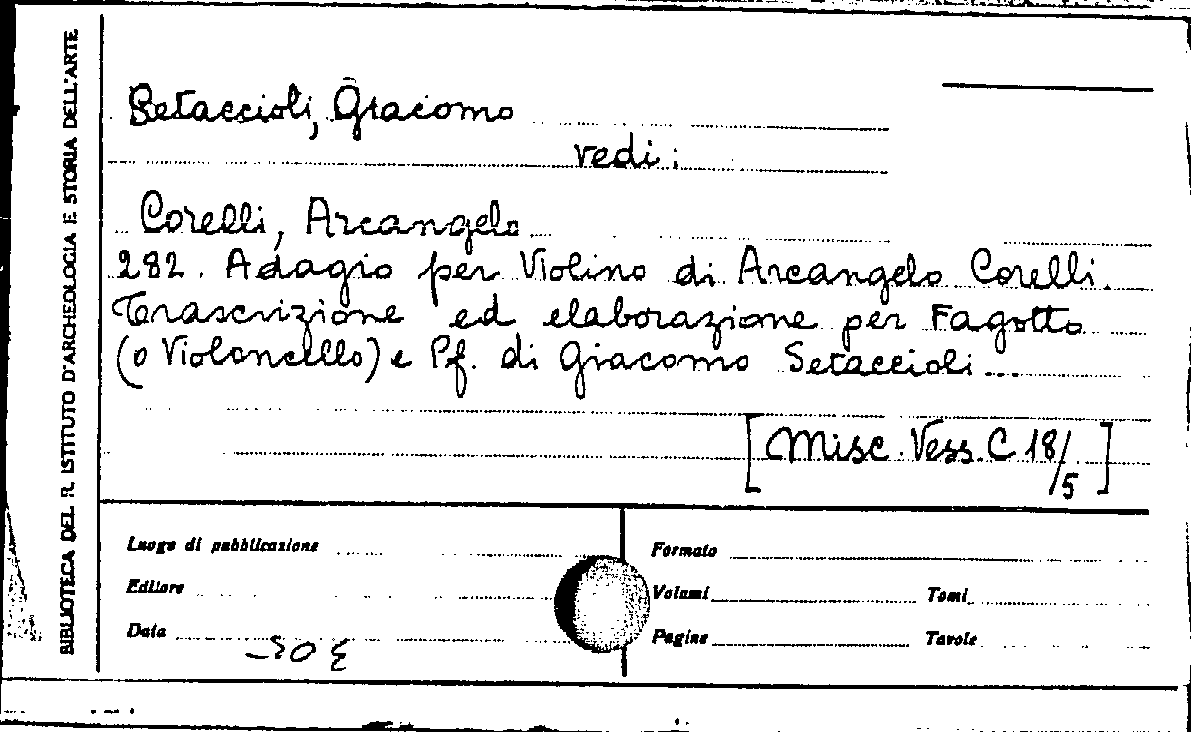 BIBLIOTECA DEL R. ISTITUTO D'ARCHEOLOGIA E STORIA DELL'ARTE
Setaccioli, Giacomo
vedi:
Corelli, Arcangelo
282. Adagio per Violino di Arcangelo Corelli.
Trascrizione ed elaborazione per Fagotto
(o Violoncello) e Pf. di Giacomo Setaccioli...
[Misc. Vess. C 18/5]
Luogo di pubblicazione
Formato
Editore
Volumi
Tomi
Data
Pagine
Tavole